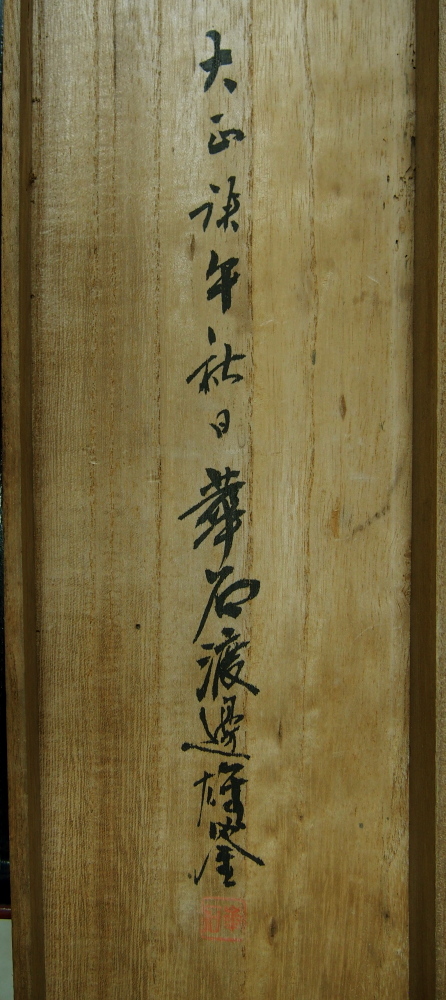 大正柒年秋日華石渡邊雄鑒